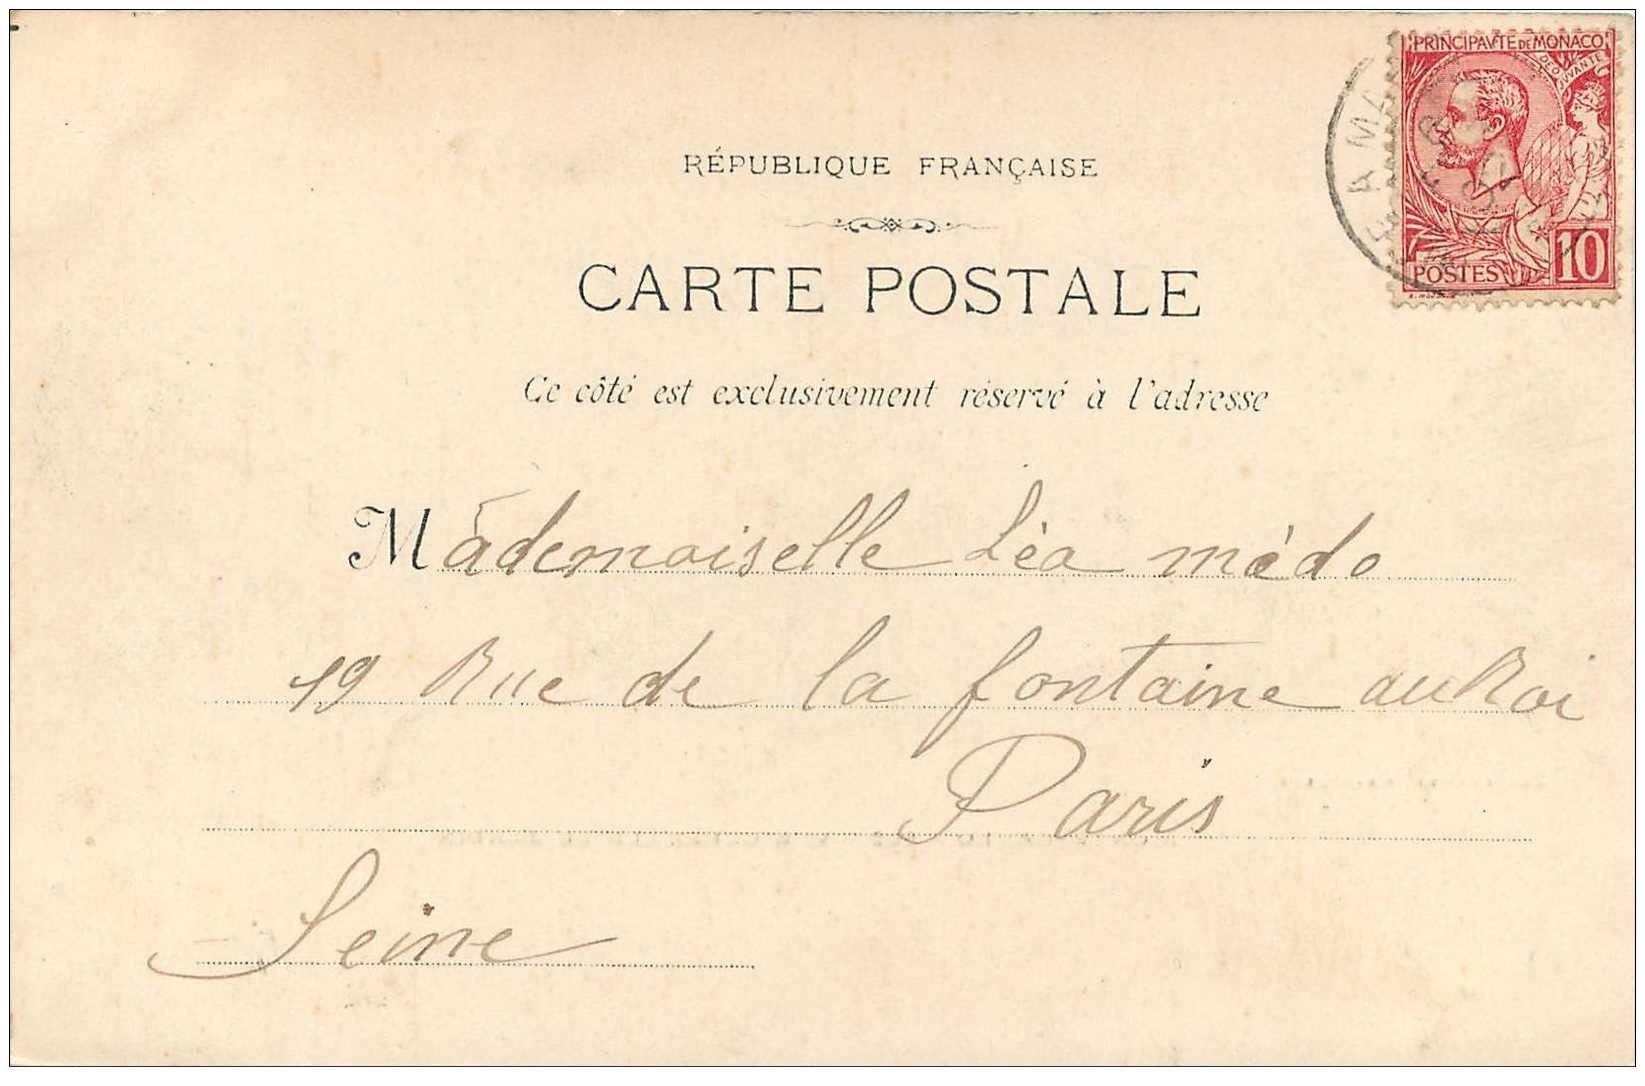 PRINCIPAVTÉ DE MONACO
DEO JUVANTE
RÉPUBLIQUE FRANÇAISE
CARTE POSTALE
POSTES 10
Ce côté est exclusivement réservé à l'adresse
Mademoiselle Léa médo
19 Rue de la fontaine au Roi
Paris
Seine